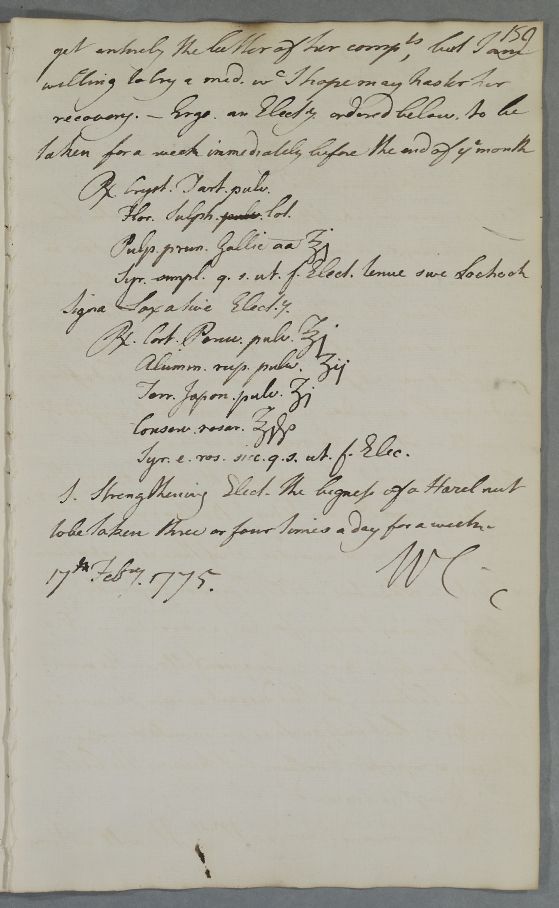 159
get entirely the better of her compts, but I am
willing to try a med. wc I hope may hasten her
recovery. — Ergo. an Electy ordered below. to be
taken for a week immediately before the end of ye month
℞ Cryst. Tart. pulv.
Flor. Sulph. pulv. lot.
Pulp. prun. Gallic aa ℥j
Syr. simpl. q. s. ut. f. Elect. tenue sive Lochoch
Signa Laxative Elect.y.
℞. Cort. Peruv. pulv. ℥j
Alumin. rup. pulv. ʒij
Terr. Japon. pulv. ʒj
Conserv. rosar. ℥jß
Syr. e. ros. sicc. q. s. ut. f. Elec.
S. Strengthening Elect. the bigness of a Hazel nut
to be taken three or four times a day for a week.
17th Febry. 1775.
WC